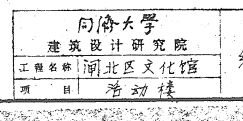 同濟大学
建筑设计研究院
工程名称 闸北区文化馆
项目 活动楼